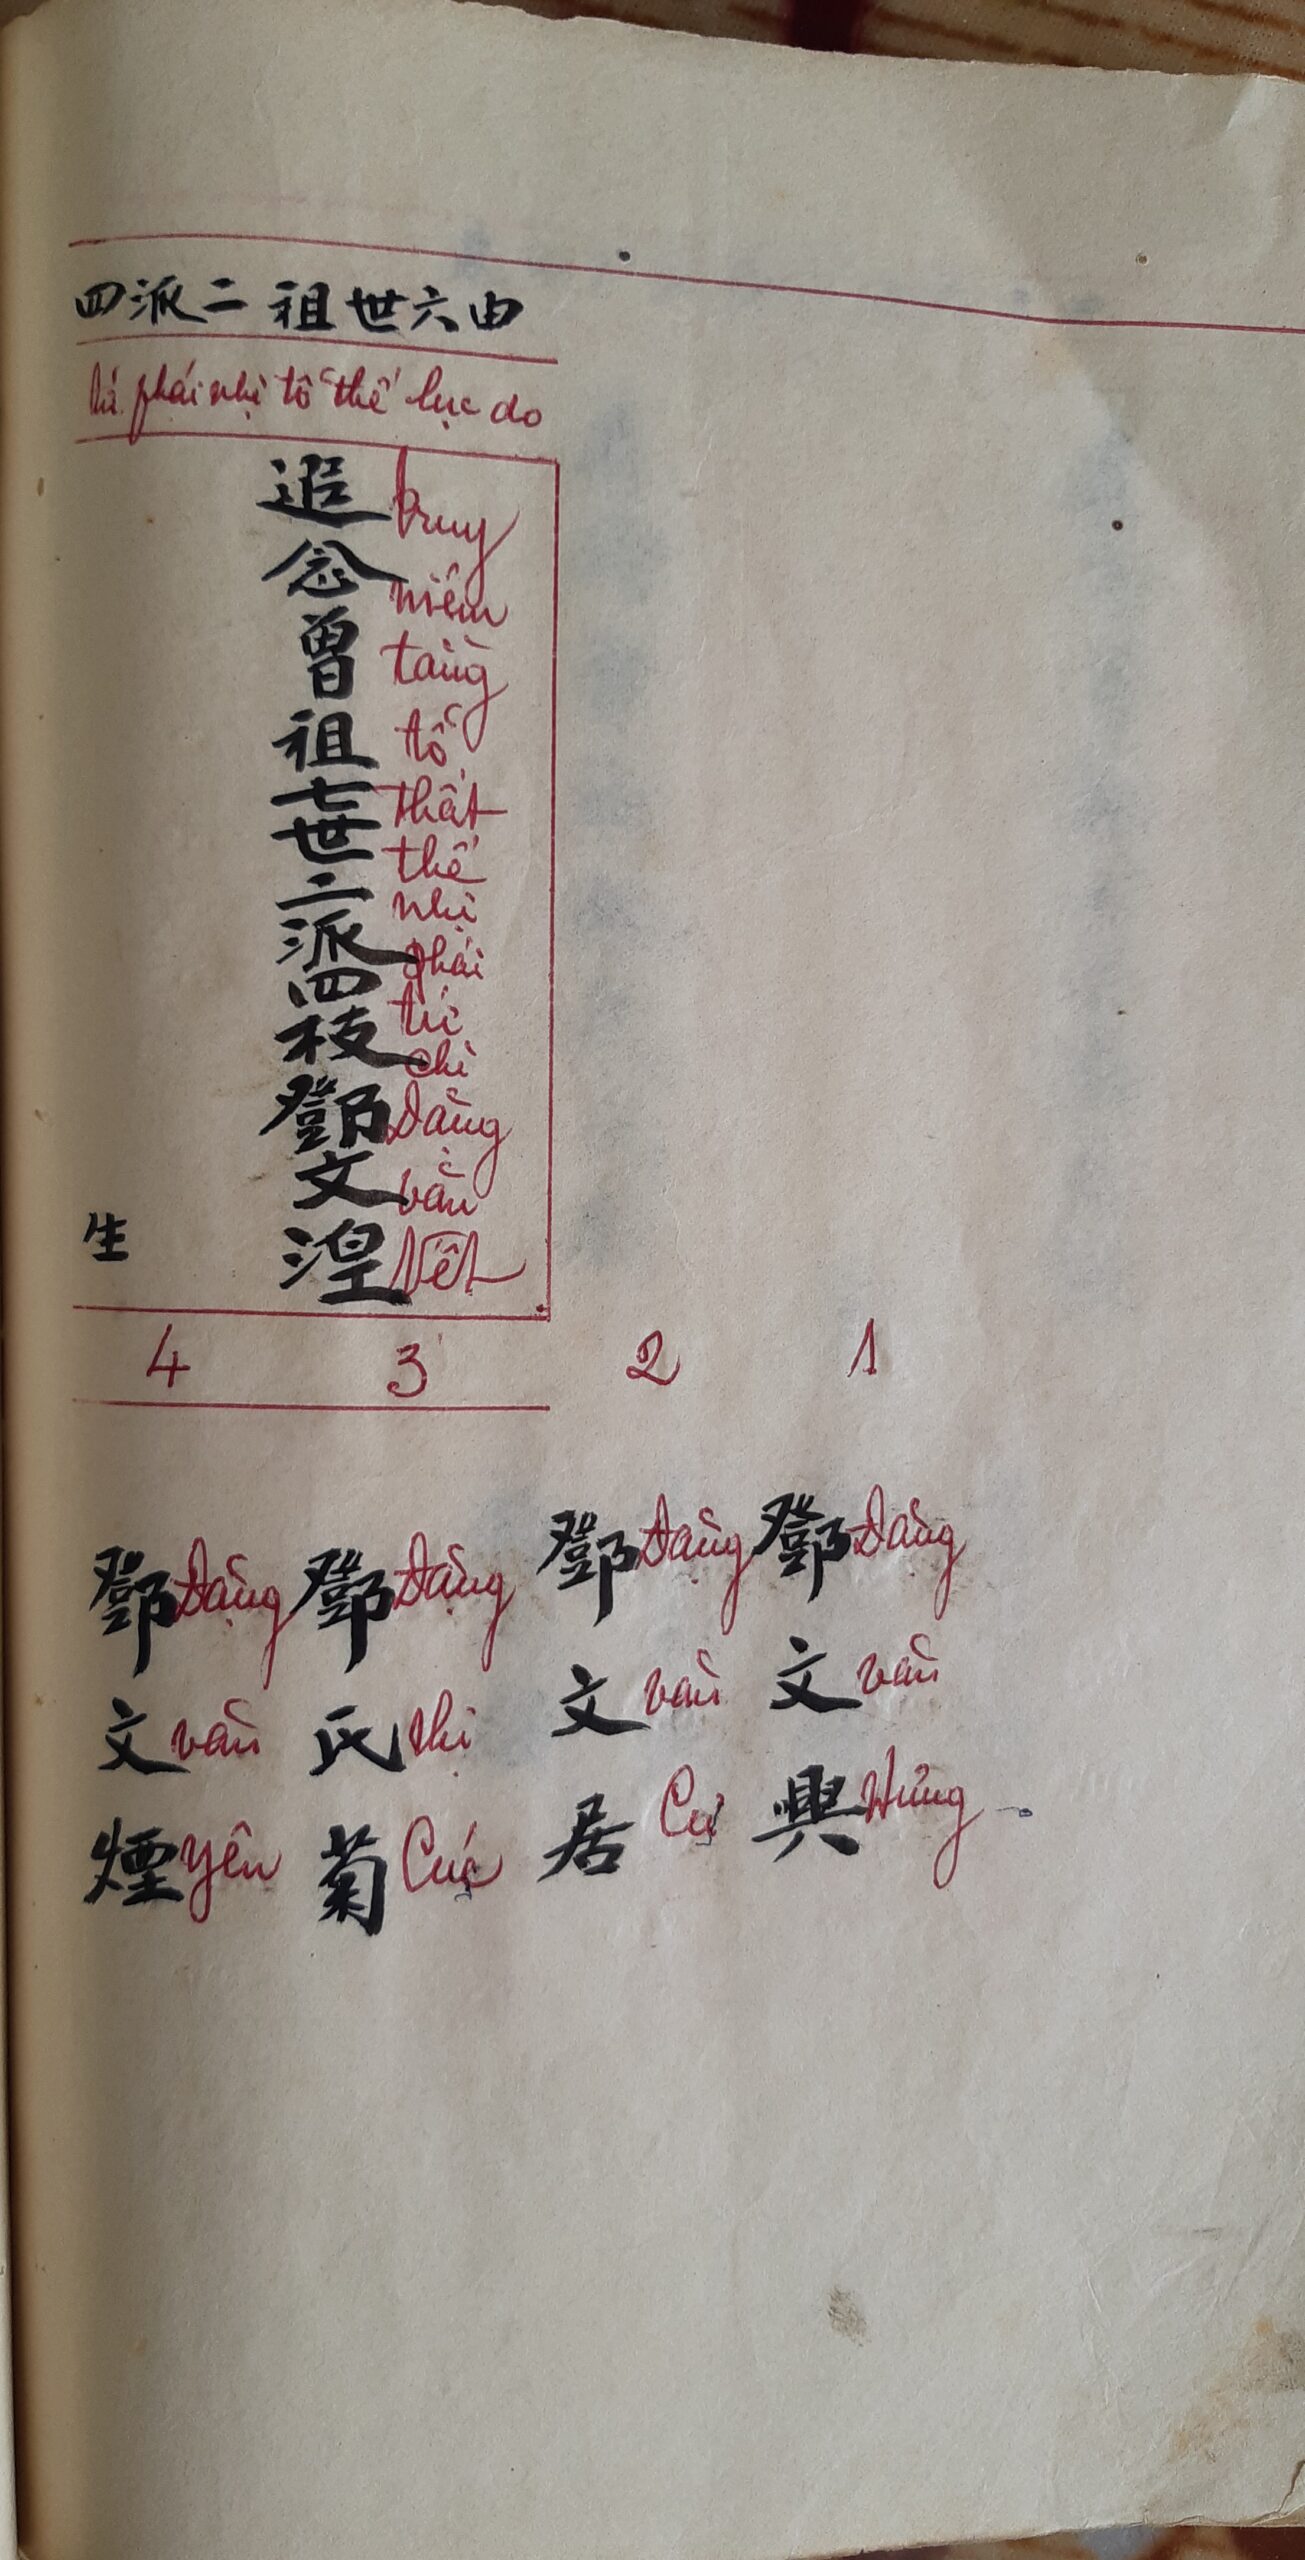 四派二祖世六由
tứ phái nhị tổ thế lục do
追念曾祖七世二派四枝鄧文湼
truy niệm tằng tổ thất thế nhị phái tứ chi Đặng văn Nết
生
4 3 2 1
鄧文興
Đặng văn Hưng
鄧文居
Đặng văn Cư
鄧氏菊
Đặng thị Cúc
鄧文煙
Đặng văn yên